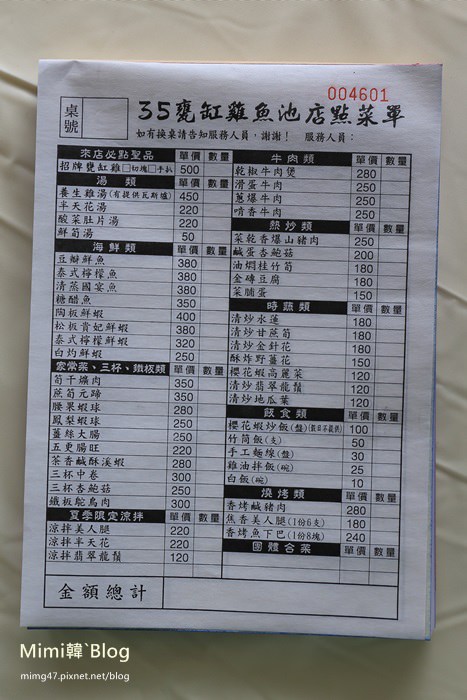 004601
桌號
35甕缸雞魚池店點菜單
如有換桌請告知服務人員，謝謝！ 服務人員：
來店必點聖品 單價 數量
招牌甕缸雞□切塊□手扒 500
湯 類 單價 數量
養生雞湯(有提供瓦斯爐) 450
半天花湯 220
酸菜肚片湯 220
鮮筍湯 50
海鮮類 單價 數量
豆瓣鮮魚 380
泰式檸檬魚 380
清蒸國宴魚 380
糖醋魚 350
陶板鮮蝦 400
松板貴妃鮮蝦 380
泰式檸檬鮮蝦 320
白灼鮮蝦 250
家常菜、三杯、鐵板類 單價 數量
筍干爌肉 350
蔗筍元蹄 350
腰果蝦球 280
鳳梨蝦球 250
薑絲大腸 250
五更腸旺 220
茶香鹹酥溪蝦 280
三杯中卷 300
三杯杏鮑菇 250
鐵板鴕鳥肉 300
夏季限定涼拌 單價 數量
涼拌美人腿 220
涼拌半天花 220
涼拌翡翠龍鬚 120
牛肉類 單價 數量
乾椒牛肉煲 280
滑蛋牛肉 250
蔥爆牛肉 250
啃香牛肉 250
熱炒類 單價 數量
菜乾香爆山豬肉 250
鹹蛋杏鮑菇 200
油燜桂竹筍 180
金磚豆腐 180
菜脯蛋 150
時蔬類 單價 數量
清炒水蓮 180
清炒甘蔗筍 180
清炒金針花 180
酥炸野薑花 150
櫻花蝦高麗菜 120
清炒翡翠龍鬚 120
清炒地瓜葉 120
飯食類 單價 數量
櫻花蝦炒飯(盤)(假日不提供) 100
竹筒飯(支) 50
手工麵線(盤) 30
雞油拌飯(碗) 25
白飯(碗) 10
燒烤類 單價 數量
香烤鹹豬肉 280
焦香美人腿(1份6支) 180
香烤魚下巴(1份8塊) 240
團體合菜 單價 數量
金額總計
Mimi韓ˋBlog
mimg47.pixnet.net/blog